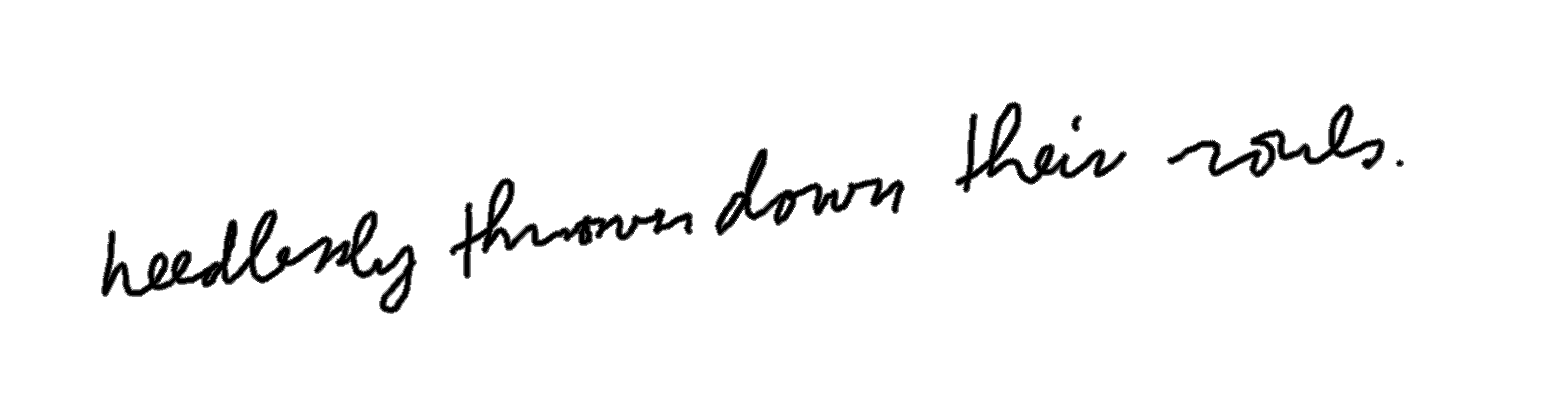 heedlessly thrown down their souls.